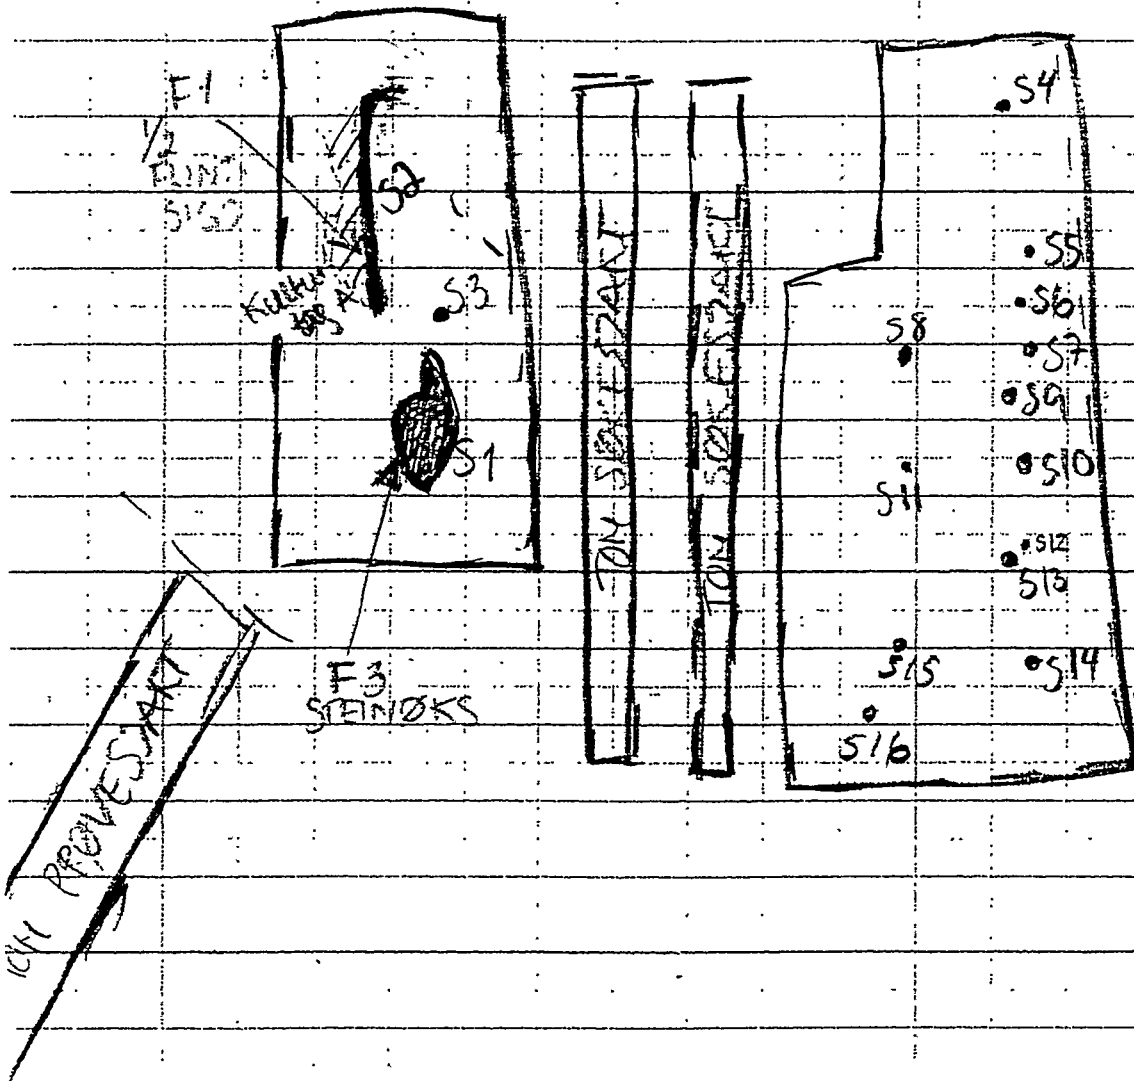 F1
1/2
FLINT
S2
Kultur
lag
S3
S1
F3
STEINØKS
TOM SØKESJAKT
TOM SØKESJAKT
PRØVESJAKT
S4
S5
S6
S7
S8
S9
S10
S11
S12
S13
S14
S15
S16